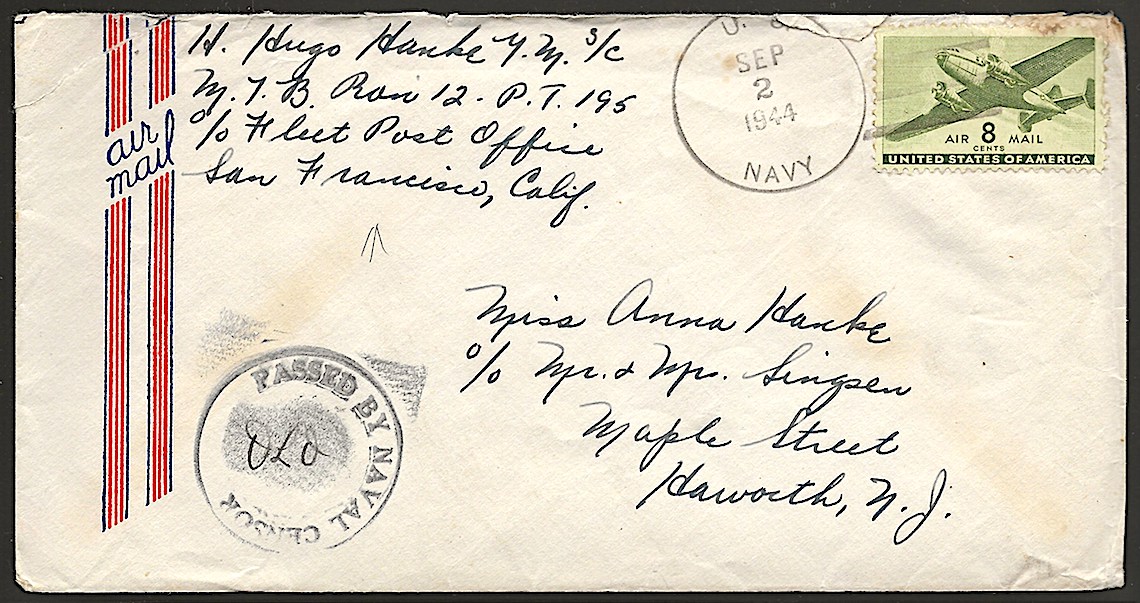 H. Hugo Hanke Y.M. 3/c
M.T.B. Ron 12 - P.T. 195
℅ Fleet Post Office
San Francisco, Calif.
air
mail
U. S.
SEP
2
1944
NAVY
AIR 8 MAIL
CENTS
UNITED STATES OF AMERICA
Miss Anna Hanke
℅ Mr. & Mrs. Singsen
Maple Street
Haworth, N.J.
PASSED BY NAVAL CENSOR